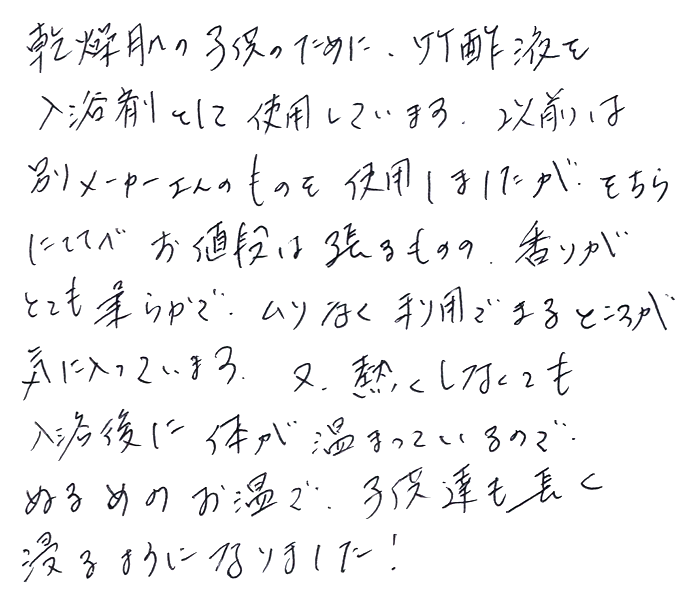 乾燥肌の子供のために、竹酢液を
入浴剤として使用しています。以前は
別メーカーさんのものを使用しましたが、そちら
にくらべお値段は張るものの、香りが
とても柔らかで、ムリなく利用できるところが
気に入っています。又、熱くしなくても
入浴後に体が温まっているので、
ぬるめのお温で、子供達も長く
浸るようになりました！